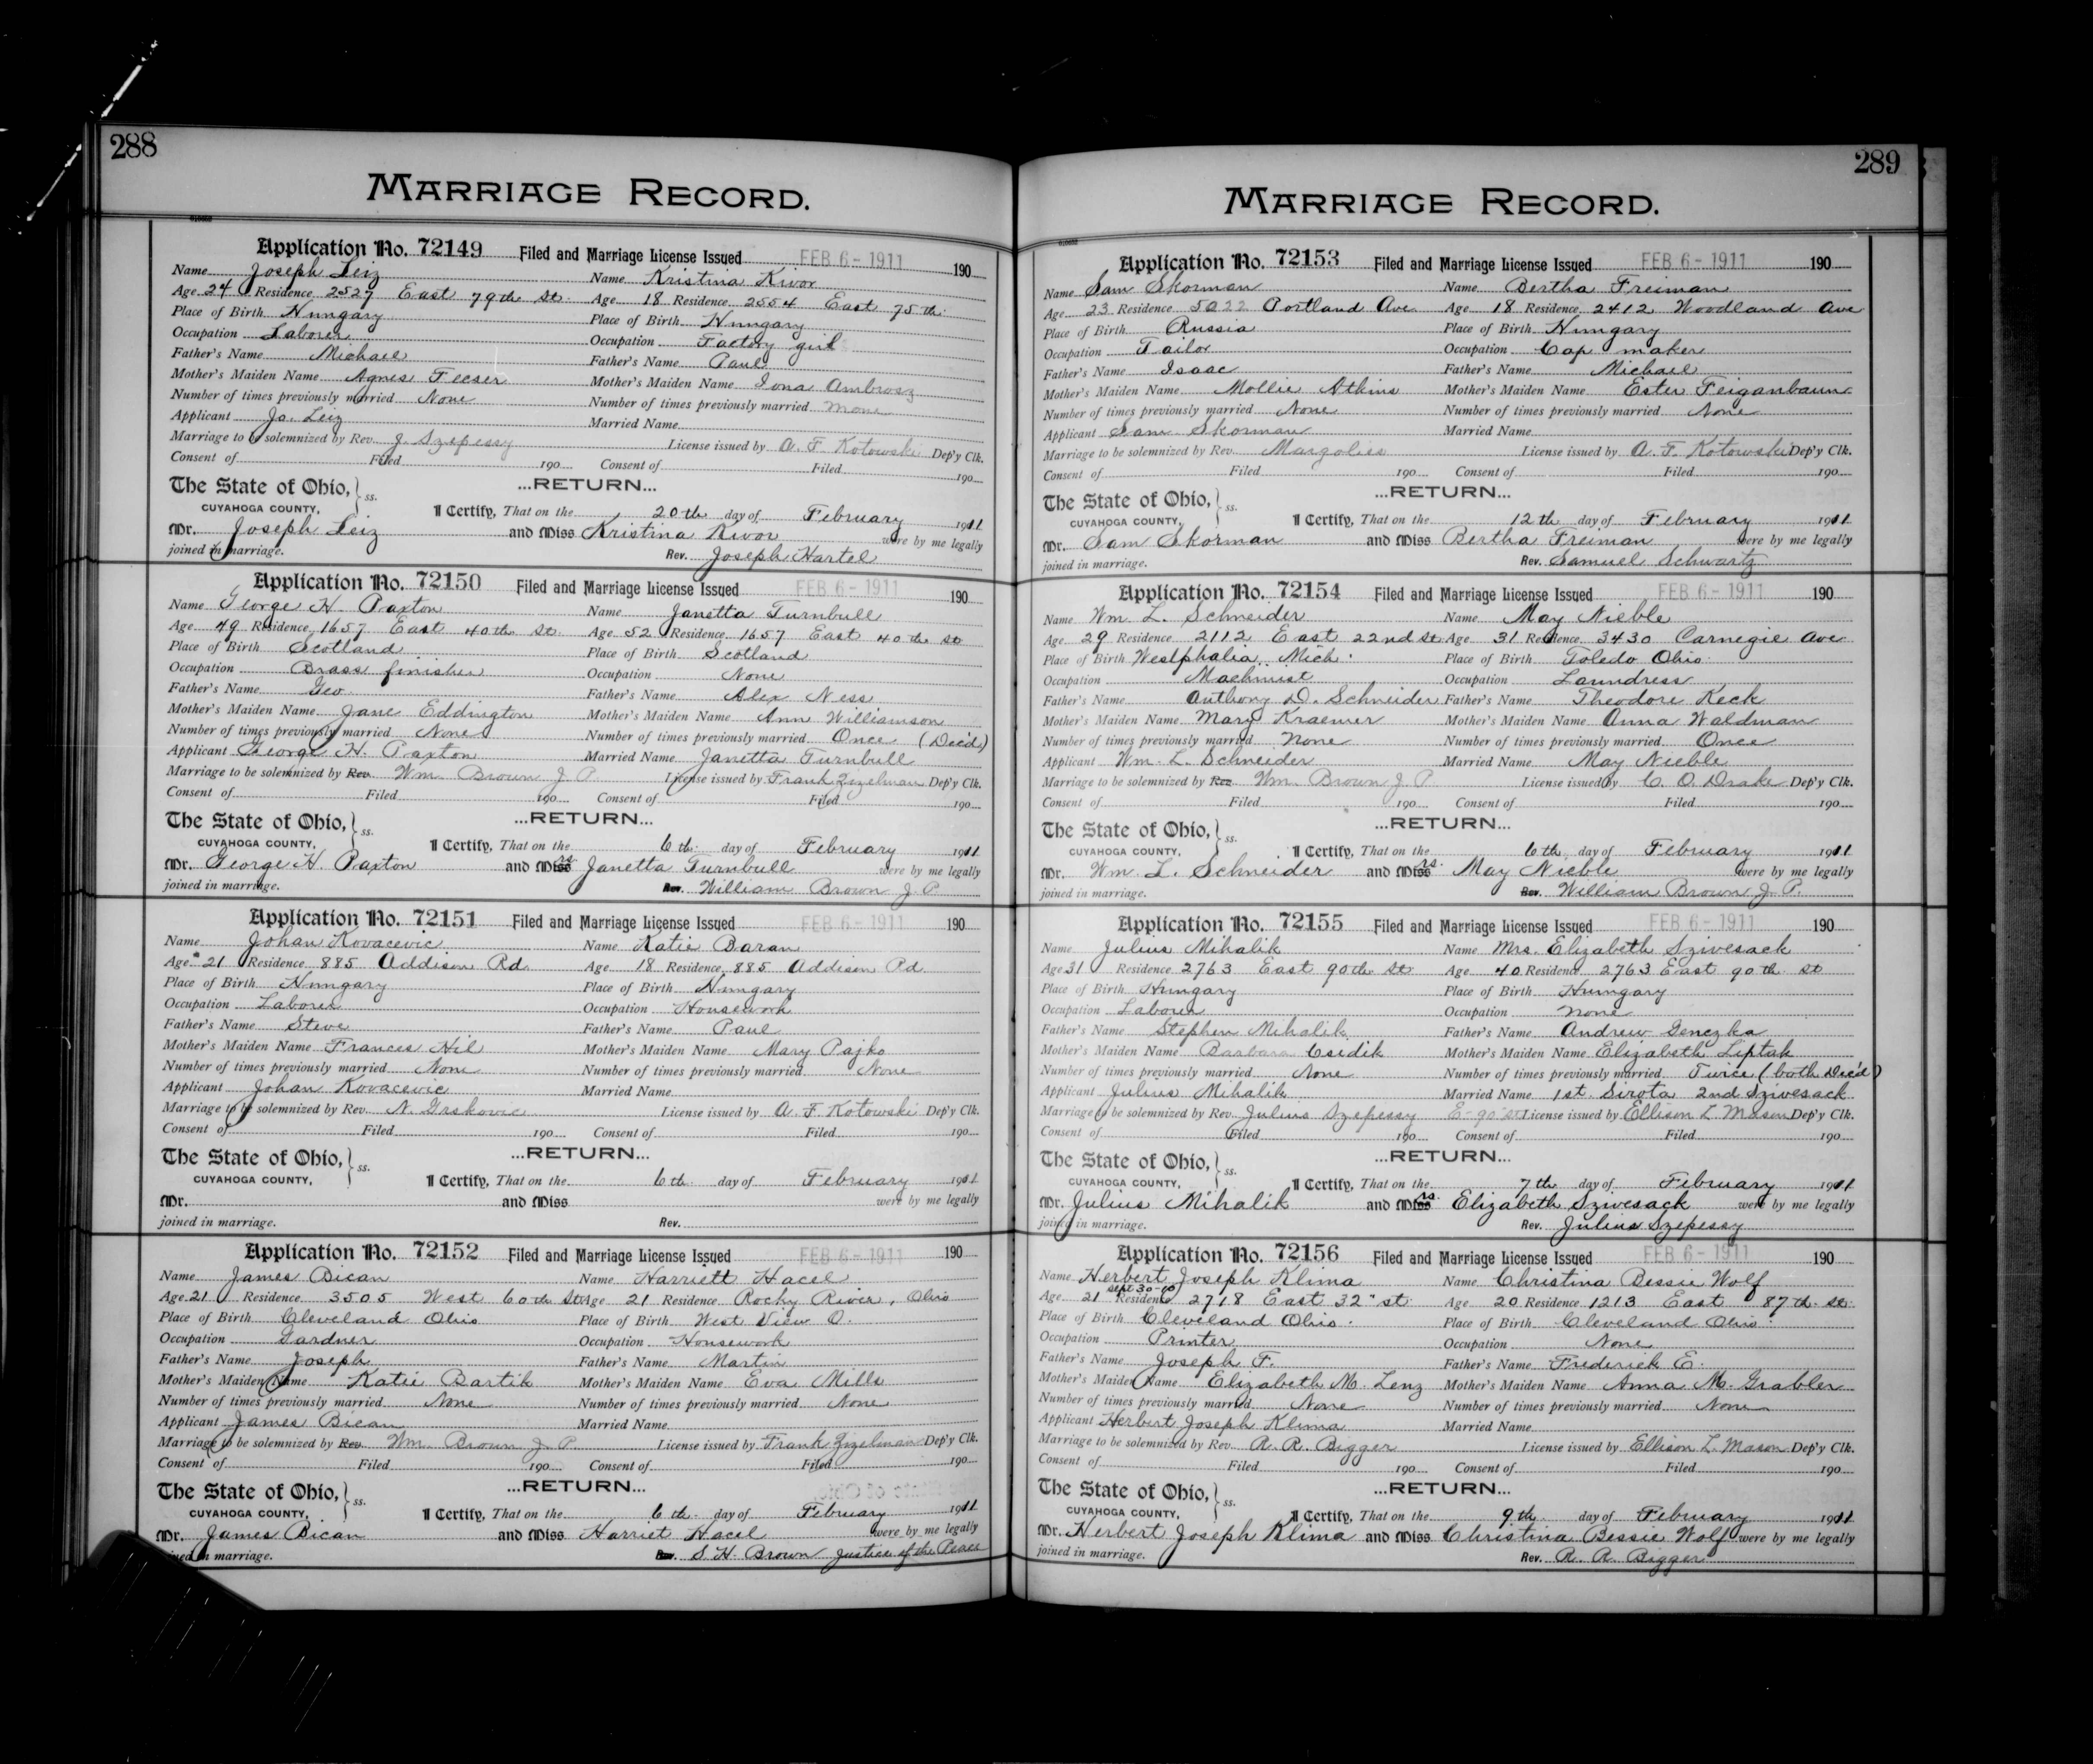 288
MARRIAGE RECORD.
Application No. 72149 Filed and Marriage License Issued FEB 6-1911 190
Name Joseph Leiz Name Kristina Kivor
Age 24 Residence 2527 East 79th St. Age 18 Residence 2554 East 75th
Place of Birth Hungary Place of Birth Hungary
Occupation Laborer Occupation Factory girl
Father's Name Michael Father's Name Paul
Mother's Maiden Name Agnes Feeser Mother's Maiden Name Iona Ambrosz
Number of times previously married None Number of times previously married None
Applicant Jo. Leiz Married Name
Marriage to be solemnized by Rev. J. Szepessy License issued by A. F. Kotowski Dep'y Clk.
Consent of Filed 190 Consent of Filed 190
The State of Ohio, ss. ...RETURN...
CUYAHOGA COUNTY, I Certify, That on the 20th day of February 1911
Mr. Joseph Leiz and Miss Kristina Kivor were by me legally
joined in marriage. Rev. Joseph Hartel
Application No. 72150 Filed and Marriage License Issued FEB 6-1911 190
Name George H. Paxton Name Janetta Turnbull
Age 49 Residence 1657 East 40th St. Age 52 Residence 1657 East 40th St
Place of Birth Scotland Place of Birth Scotland
Occupation Brass finisher Occupation None
Father's Name Geo. Father's Name Alex Ness
Mother's Maiden Name Jane Eddington Mother's Maiden Name Ann Williamson
Number of times previously married None Number of times previously married Once (Dec'd)
Applicant George H. Paxton Married Name Janetta Turnbull
Marriage to be solemnized by Rev. Wm. Brown J. P. License issued by Frank Zizelman Dep'y Clk.
Consent of Filed 190 Consent of Filed 190
The State of Ohio, ss. ...RETURN...
CUYAHOGA COUNTY, I Certify, That on the 6th day of February 1911
Mr. George H. Paxton and Mrs. Janetta Turnbull were by me legally
joined in marriage. Rev. William Brown J. P.
Application No. 72151 Filed and Marriage License Issued FEB 6-1911 190
Name Johan Kovacevic Name Katie Baran
Age 21 Residence 885 Addison Rd. Age 18 Residence 885 Addison Rd
Place of Birth Hungary Place of Birth Hungary
Occupation Laborer Occupation Housework
Father's Name Steve Father's Name Paul
Mother's Maiden Name Frances Hil Mother's Maiden Name Mary Pajko
Number of times previously married None Number of times previously married None
Applicant Johan Kovacevic Married Name
Marriage to be solemnized by Rev. N. Grskovic License issued by A. F. Kotowski Dep'y Clk.
Consent of Filed 190 Consent of Filed 190
The State of Ohio, ss. ...RETURN...
CUYAHOGA COUNTY, I Certify, That on the 6th day of February 1911
Mr. and Miss were by me legally
joined in marriage. Rev.
Application No. 72152 Filed and Marriage License Issued FEB 6-1911 190
Name James Bican Name Harriett Hacel
Age 21 Residence 3505 West 60th St Age 21 Residence Rocky River, Ohio
Place of Birth Cleveland Ohio Place of Birth West View O.
Occupation Gardner Occupation Housework
Father's Name Joseph Father's Name Martin
Mother's Maiden Name Katie Bartik Mother's Maiden Name Eva Mills
Number of times previously married None Number of times previously married None
Applicant James Bican Married Name
Marriage to be solemnized by Rev. Wm. Brown J. P. License issued by Frank Zizelman Dep'y Clk.
Consent of Filed 190 Consent of Filed 190
The State of Ohio, ss. ...RETURN...
CUYAHOGA COUNTY, I Certify, That on the 6th day of February 1911
Mr. James Bican and Miss Harriet Hacel were by me legally
in marriage. Rev. S. H. Brown Justice of the Peace
289
MARRIAGE RECORD.
Application No. 72153 Filed and Marriage License Issued FEB 6-1911 190
Name Sam Skorman Name Bertha Freiman
Age 23 Residence 5022 Portland Ave Age 18 Residence 2412 Woodland Ave
Place of Birth Russia Place of Birth Hungary
Occupation Tailor Occupation Cap maker
Father's Name Isaac Father's Name Michael
Mother's Maiden Name Mollie Atkins Mother's Maiden Name Ester Feiganbaum
Number of times previously married None Number of times previously married None
Applicant Sam Skorman Married Name
Marriage to be solemnized by Rev. Margolies License issued by A. F. Kotowski Dep'y Clk.
Consent of Filed 190 Consent of Filed 190
The State of Ohio, ss. ...RETURN...
CUYAHOGA COUNTY, I Certify, That on the 12th day of February 1911
Mr. Sam Skorman and Miss Bertha Freiman were by me legally
joined in marriage. Rev. Samuel Schwartz
Application No. 72154 Filed and Marriage License Issued FEB 6-1911 190
Name Wm. L. Schneider Name May Nieble
Age 29 Residence 2112 East 22nd St Age 31 Residence 3430 Carnegie Ave
Place of Birth Westphalia, Mich. Place of Birth Toledo Ohio.
Occupation Machinist Occupation Laundress
Father's Name Anthony D. Schneider Father's Name Theodore Keck
Mother's Maiden Name Mary Kraemer Mother's Maiden Name Anna Waldman
Number of times previously married None Number of times previously married Once
Applicant Wm. L. Schneider Married Name May Nieble
Marriage to be solemnized by Rev. Wm. Brown J. P. License issued by C. O. Drake Dep'y Clk.
Consent of Filed 190 Consent of Filed 190
The State of Ohio, ss. ...RETURN...
CUYAHOGA COUNTY, I Certify, That on the 6th day of February 1911
Mr. Wm. L. Schneider and Mrs. May Nieble were by me legally
joined in marriage. Rev. William Brown J. P.
Application No. 72155 Filed and Marriage License Issued FEB 6-1911 190
Name Julius Mihalik Name Mrs. Elizabeth Szivesack
Age 31 Residence 2763 East 90th St Age 40 Residence 2763 East 90th St
Place of Birth Hungary Place of Birth Hungary
Occupation Laborer Occupation None
Father's Name Stephen Mihalik Father's Name Andrew Genczka
Mother's Maiden Name Barbara Csidik Mother's Maiden Name Elizabeth Liptak
Number of times previously married None Number of times previously married Twice (both Dec'd)
Applicant Julius Mihalik Married Name 1st. Sirota 2nd Szivesack
Marriage to be solemnized by Rev. Julius Szepessy E-90 St. License issued by Ellison L. Mason Dep'y Clk.
Consent of Filed 190 Consent of Filed 190
The State of Ohio, ss. ...RETURN...
CUYAHOGA COUNTY, I Certify, That on the 7th day of February 1911
Mr. Julius Mihalik and Mrs. Elizabeth Szivesack were by me legally
joined in marriage. Rev. Julius Szepessy
Application No. 72156 Filed and Marriage License Issued FEB 6-1911 190
Name Herbert Joseph Klima Name Christina Bessie Wolf
Age 21 Sept 30-10 Residence 2718 East 32" St. Age 20 Residence 1213 East 87th St.
Place of Birth Cleveland Ohio. Place of Birth Cleveland Ohio.
Occupation Printer Occupation None
Father's Name Joseph F. Father's Name Frederick E.
Mother's Maiden Name Elizabeth M. Lenz Mother's Maiden Name Anna M. Grabler
Number of times previously married None Number of times previously married None
Applicant Herbert Joseph Klima Married Name
Marriage to be solemnized by Rev. R. R. Bigger License issued by Ellison L. Mason Dep'y Clk.
Consent of Filed 190 Consent of Filed 190
The State of Ohio, ss. ...RETURN...
CUYAHOGA COUNTY, I Certify, That on the 9th day of February 1911
Mr. Herbert Joseph Klima and Miss Christina Bessie Wolf were by me legally
joined in marriage. Rev. R. R. Bigger